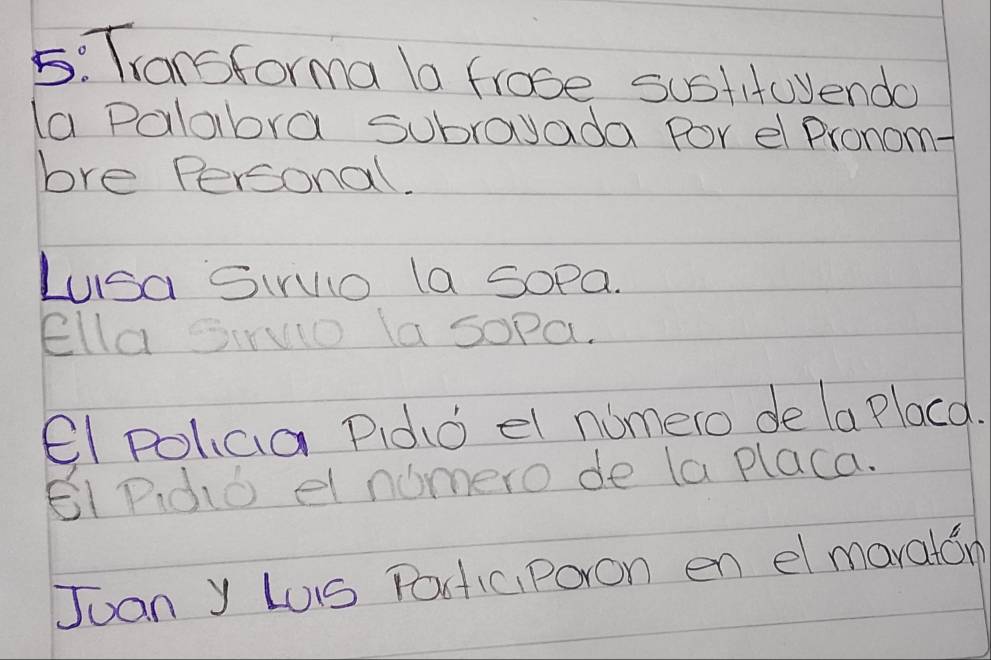 5: Transforma la frase sustituyendo
la Palabra subrayada Por el Pronom-
bre Personal.
Luisa Sirvio la sopa.
Ella Sirvio la sopa.
El policia Pidió el número de la Placa.
Él Pidió el número de la placa.
Juan y Luis Participaron en el maratón